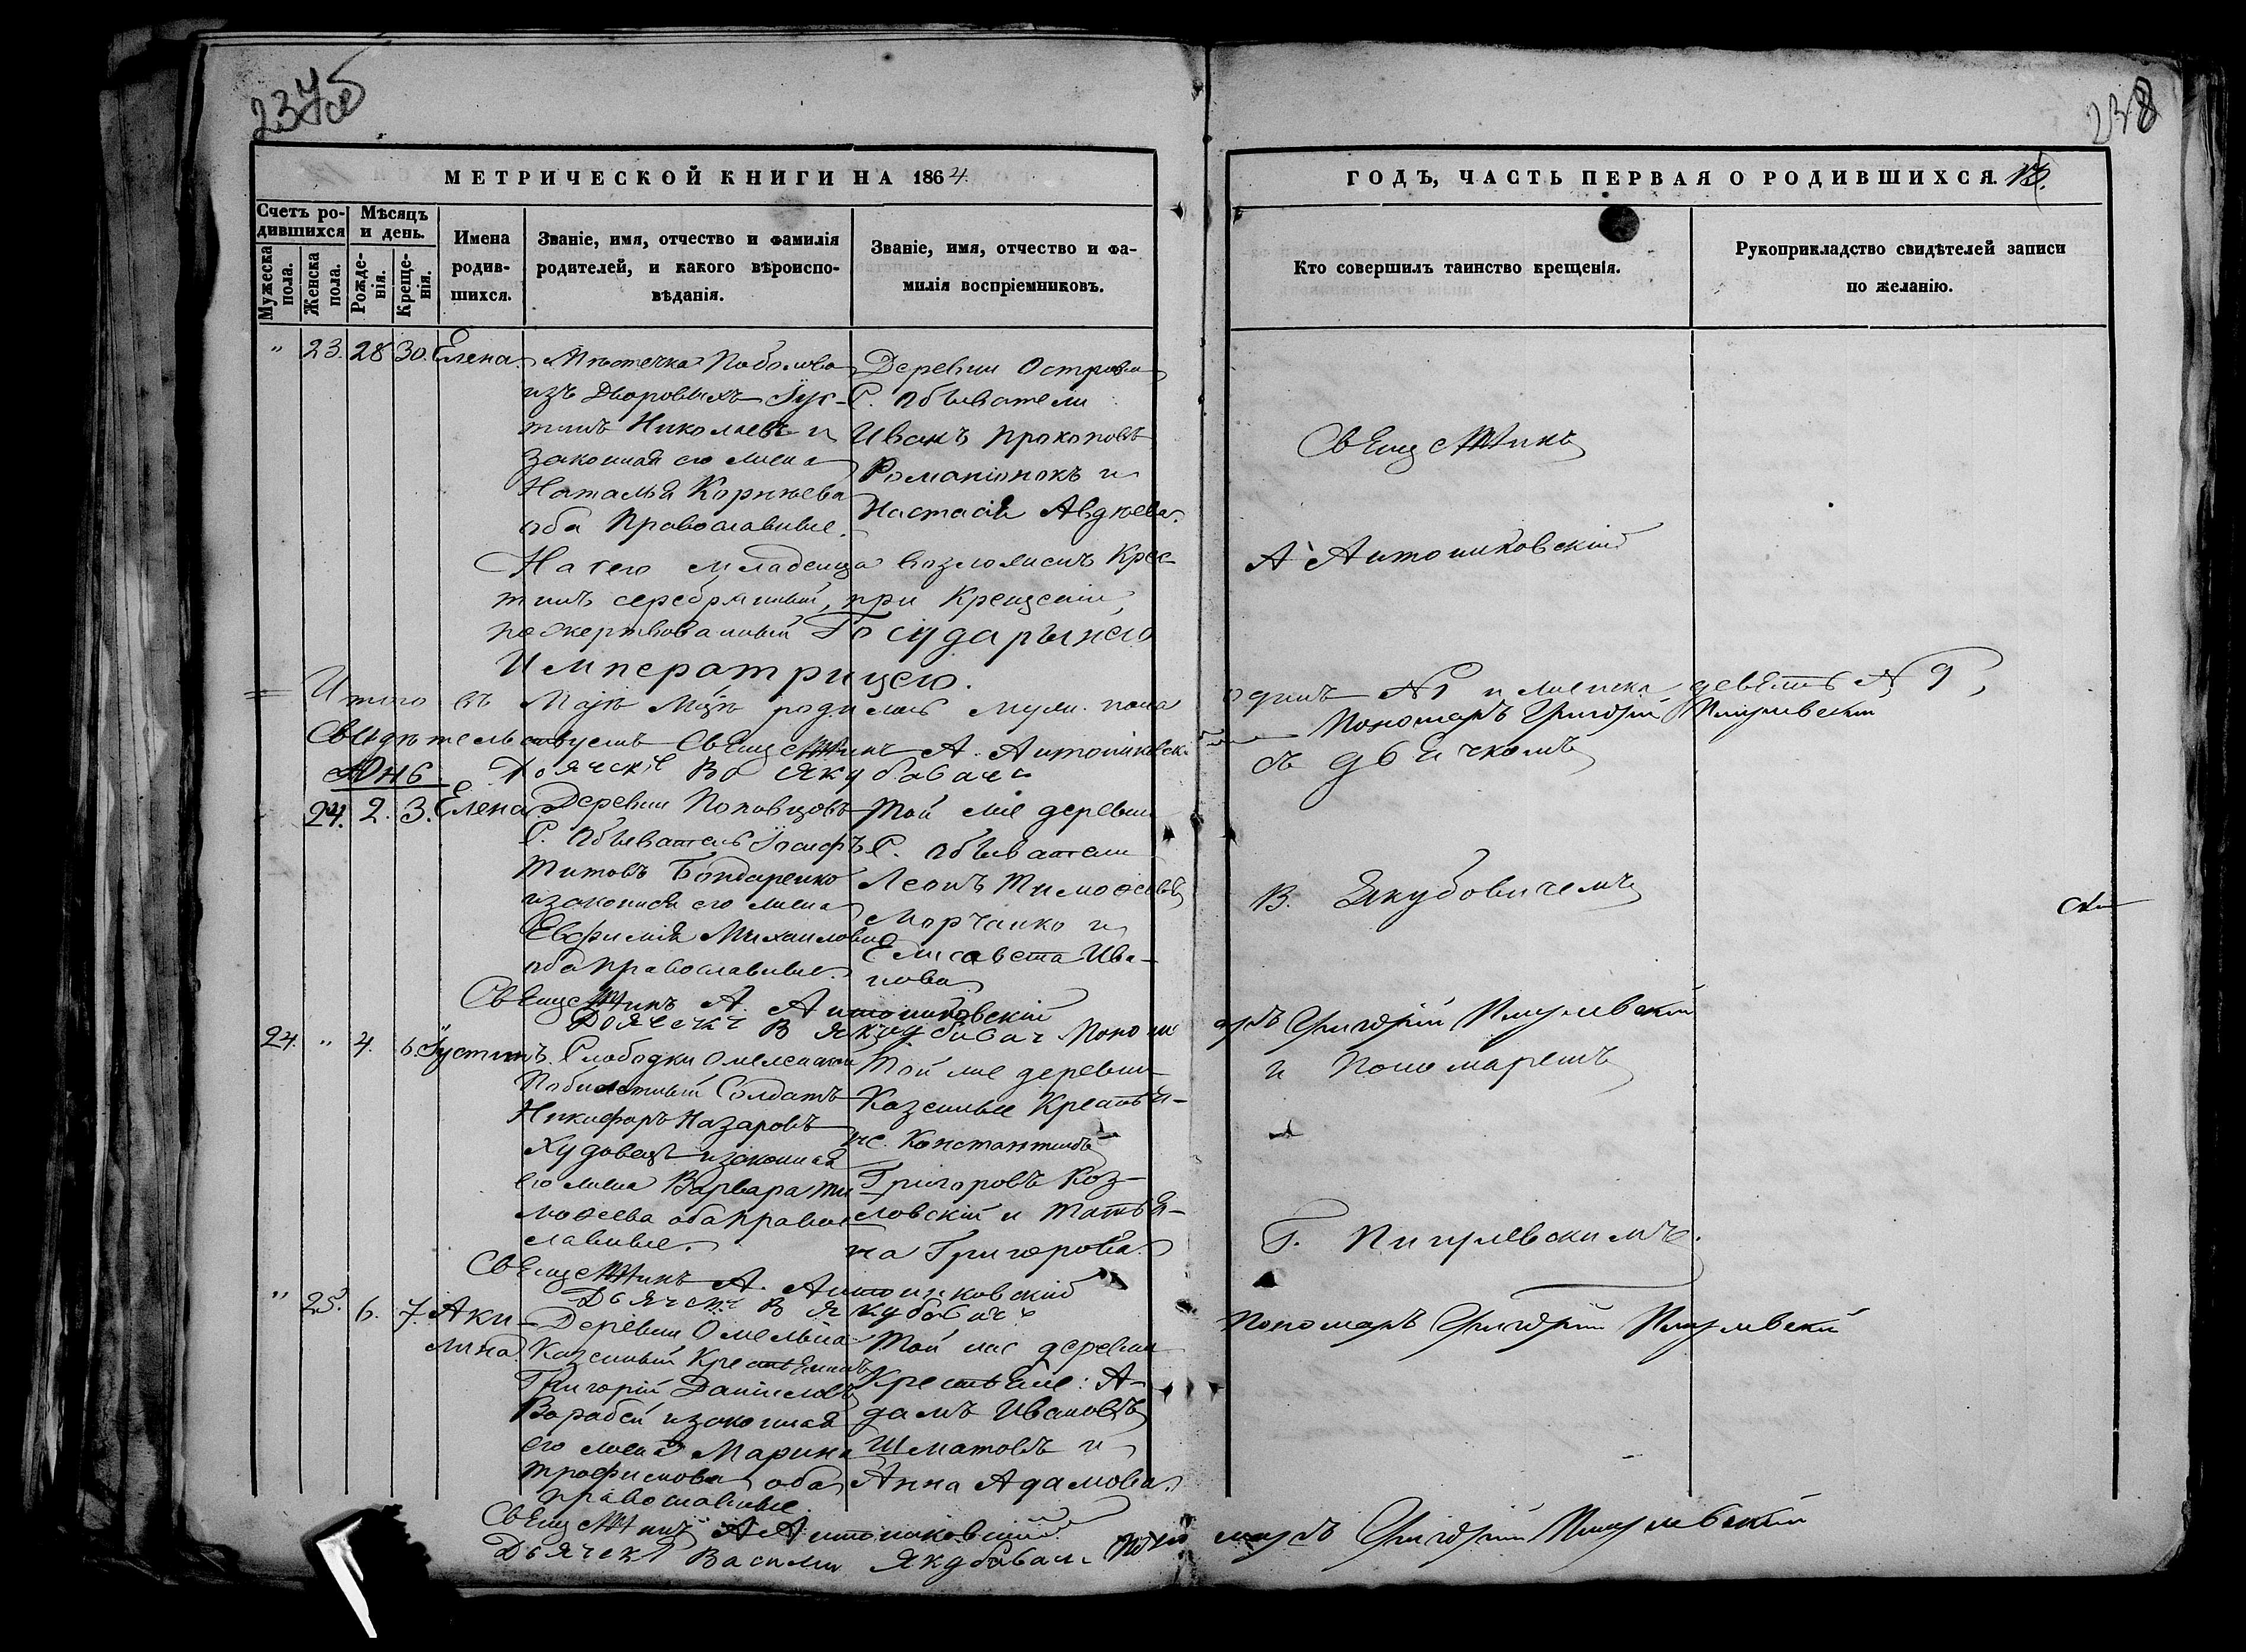 237об
238
МЕТРИЧЕСКОЙ КНИГИ НА 1864.
ГОДЪ, ЧАСТЬ ПЕРВАЯ О РОДИВШИХСЯ.
Счетъ ро-
дившихся
Мужеска
пола.
Женска
пола.
Мѣсяцъ
и день.
Рожде-
нія.
Креще-
нія.
Имена
родив-
шихся.
Званіе, имя, отчество и фамилія
родителей, и какого вѣроиспо-
вѣданія.
Званіе, имя, отчество и фа-
милія воспріемниковъ.
Кто совершилъ таинство крещенія.
Рукоприкладство свидѣтелей записи
по желанію.
" 23. 28 30. Елена.
Мѣстечка
изъ Дворовыхъ Іус-
тинъ Николаевъ и
законная его жена
Наталья Корнѣева
оба Православные.
Деревни Острова
Г. Обыватели
Иванъ Прокоповъ
Романіонокъ и
Настасія Авдѣева.
На сего младенца возложенъ Крес-
тикъ серебряный, при Крещеніи,
пожертвованный Государынею
Императрицею.
Священникъ
А Антониковскій
Итого въ Маѣ М-цѣ родилось муж. пола
одинъ № 1 и женска девять № 9,
Свидѣтельствуетъ Священникъ А. Антониковск.
Пономарь Григорій
Дьячекъ В Якубовичъ
съ дьячкомъ
Юнь
24. 2. 3. Елена.
Деревни Поповцовъ
Г. Обыватель Іосифъ
Титовъ Бондаренко
и законная его жена
Евфимія Михаилова
оба православные.
Той же деревни
Г. обыватели
Леонъ Тимофеевъ
Морчанко и
Елисавета Ива-
нова
В. Якубовичемъ
Священникъ А. Антониковскій
Дьячекъ В Якубовичъ Пономарь Григорій
24. " 4. 6. Іустинъ.
Слободки Омеленской
Побилетный Солдатъ
Никифоръ Назаровъ
Худовецъ и законная
его жена Варвара Ти
мофеева оба право
славные.
Той же деревни
Казенные Крестья-
не. Константинъ
Григоровъ Коз-
ловскій и Татья-
на Григорова.
и Пономаремъ
Г. Пигулевскимъ.
Священникъ А. Антониковскій
Дьячекъ В Якубовичъ
Пономарь Григорій
" 25. 6. 7. Аки-
лина.
Деревни Омельна
Казенный Крестьянинъ
Григорій Даниловъ
Воробей и законная
его жена Марина
Трофимова оба
православные.
Той же деревни
Крестьяне: А-
дамъ Ивановъ
Шматовъ и
Анна Адамова.
Священникъ А Антониковскій
Дьячекъ Василій Якубович Пономарь Григорій